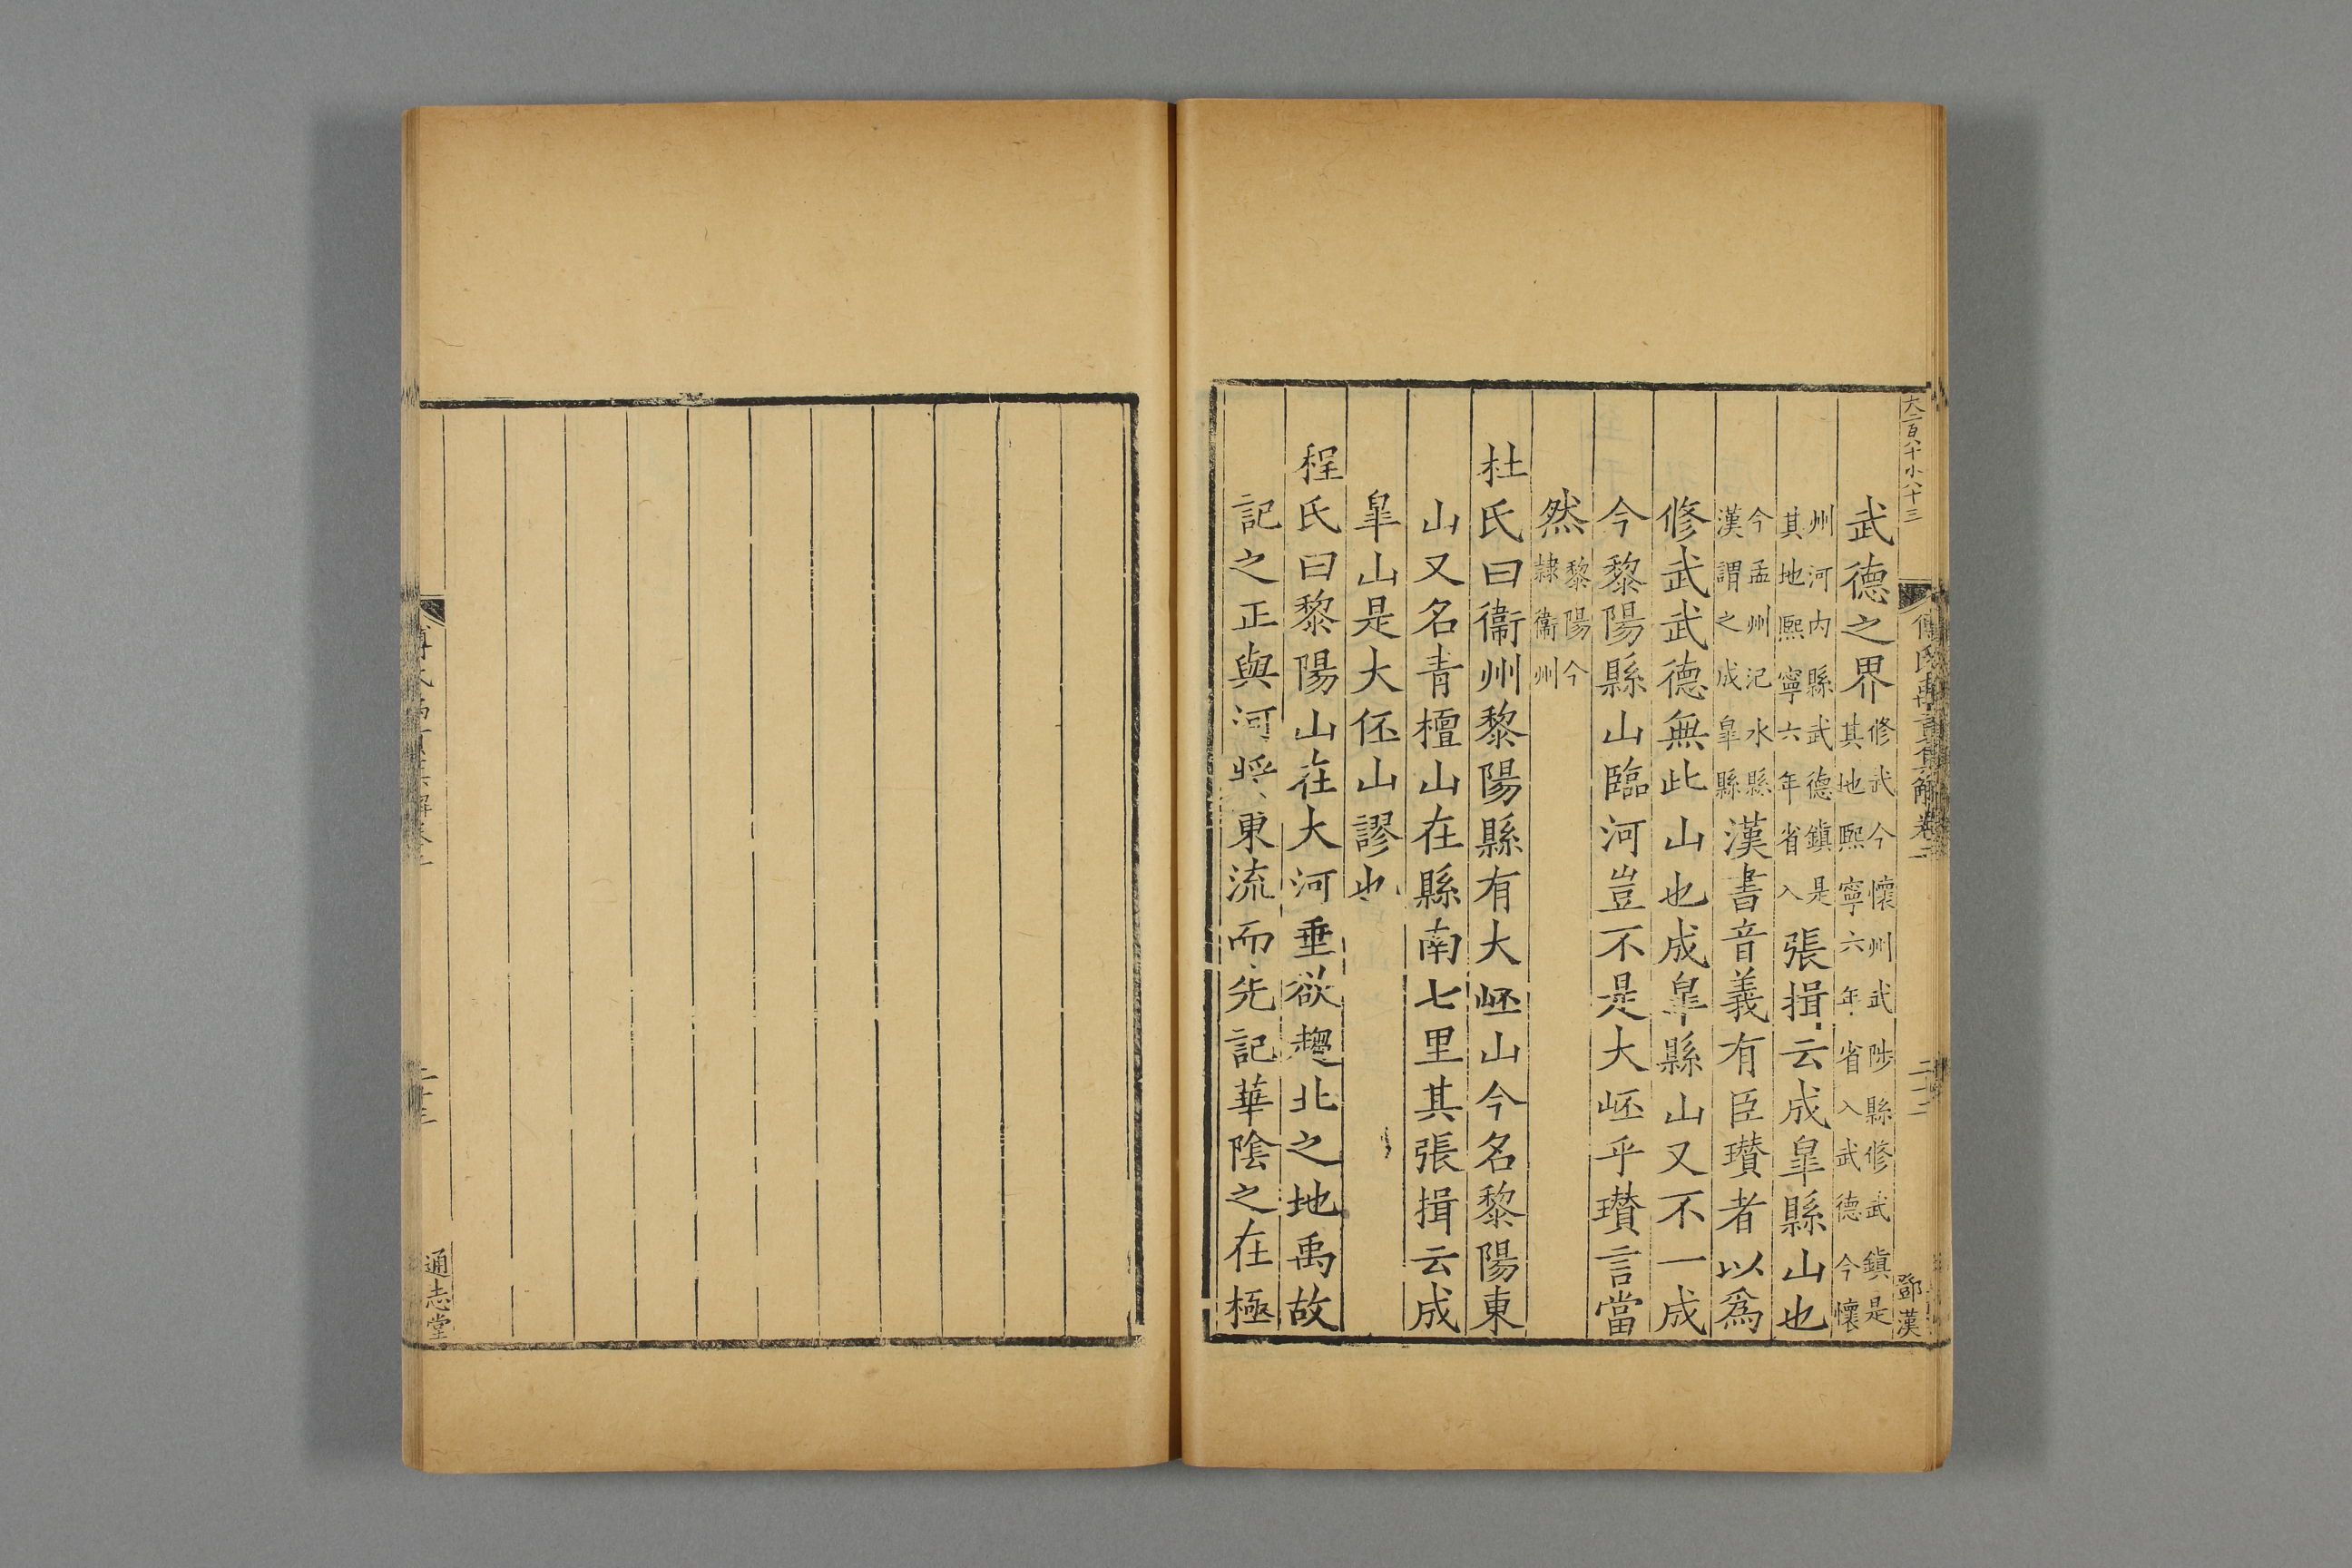 大二百八十小八十三
武德之界修武今懷州武陟縣修武鎮是其地熙寧六年省入武德今懷
州河內縣武德鎮是其地熙寧六年省入張揖云成臯縣山也
今孟州汜水縣漢謂之成臯縣漢書音義有臣瓚者以爲
修武武德無此山也成臯縣山又不一成
今黎陽縣山臨河豈不是大岯乎瓚言當
然黎陽今隸衞州
杜氏曰衞州黎陽縣有大岯山今名黎陽東
山又名青檀山在縣南七里其張揖云成
臯山是大伾山謬也
程氏曰黎陽山在大河垂欲趨北之地禹故
記之正與河將東流而先記華陰之在極
鄧漢
通志堂